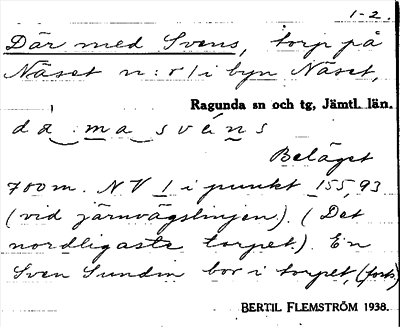 1-2.
Där med Svens, torp på
Näset n:r 1 i byn Näset,
Ragunda sn och tg, Jämtl. län.
da ma svens
Beläget
700 m. NV 1 i punkt 155,93
(vid järnvägslinjen). (Det
nordligaste torpet). En
Sven Sundin bor i torpet, (forts)
BERTIL FLEMSTRÖM 1938.